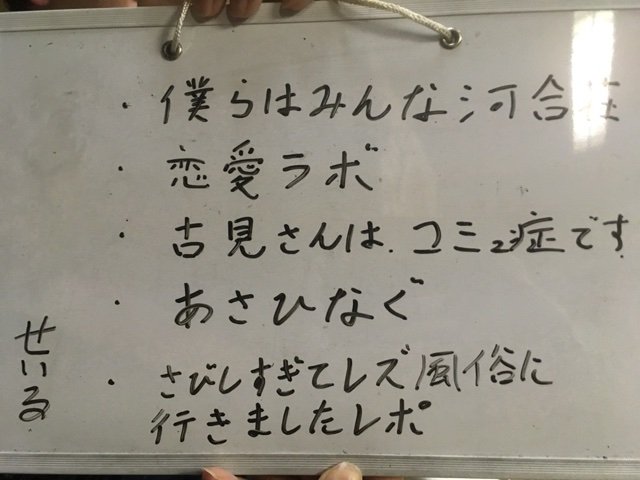 ・僕らはみんな河合荘
・恋愛ラボ
・古見さんは、コミュ症です
・あさひなぐ
・さびしすぎてレズ風俗に
行きましたレポ
せいる